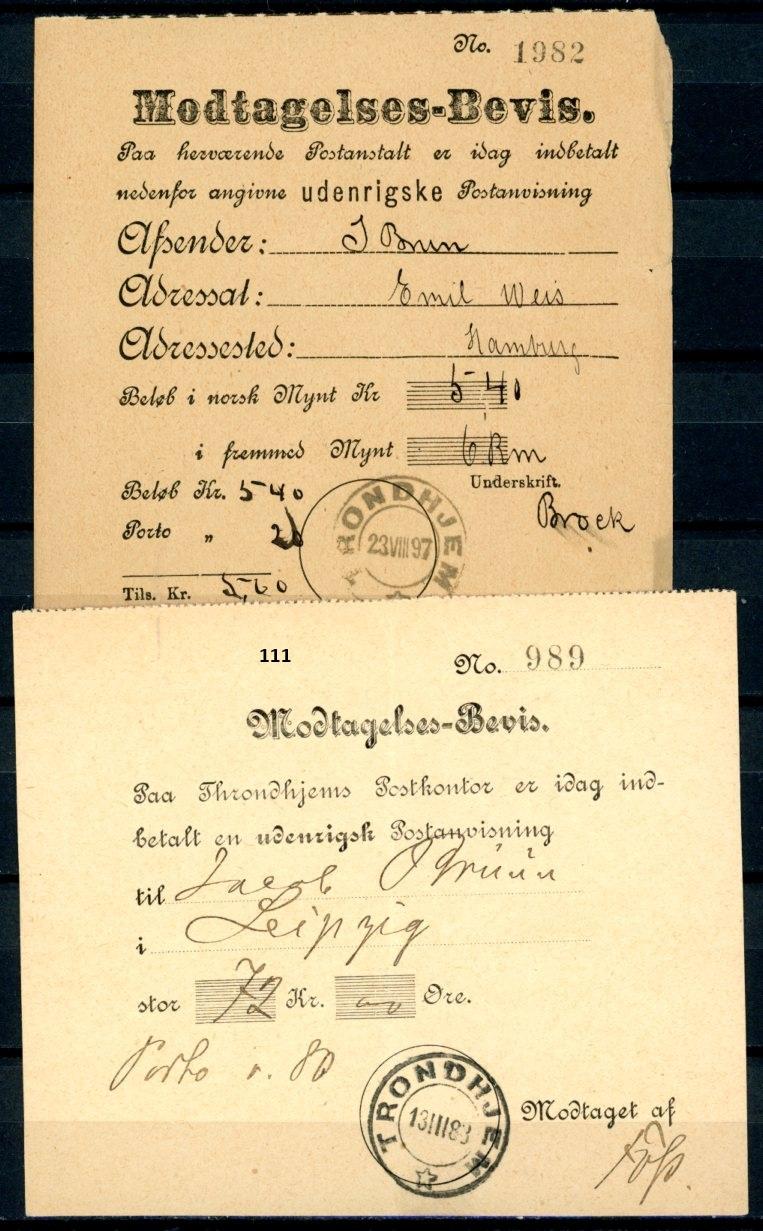 No. 1982
Modtagelses-Bevis.
Paa herværende Postanstalt er idag indbetalt
nedenfor angivne udenrigske Postanvisning
Afsender: J Brun
Adressat: Emil Weis
Adressested: Hamburg
Beløb i norsk Mynt Kr 5 40
i fremmed Mynt 6 Rm
Underskrift.
Beløb Kr. 5 40
Brock
Porto „ 20
TRONDHJEM
23 VIII 97
Tils. Kr. 5,60
111
No. 989
Modtagelses-Bevis.
Paa Throndhjems Postkontor er idag ind-
betalt en udenrigsk Postanvisning
til Jacob
i Leipzig
stor 72 Kr. Øre.
Porto 0. 80
TRONDHJEM
13 III 83
Modtaget af